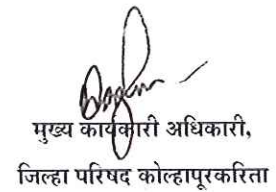 मुख्य कार्यकारी अधिकारी,
जिल्हा परिषद कोल्हापूरकरिता